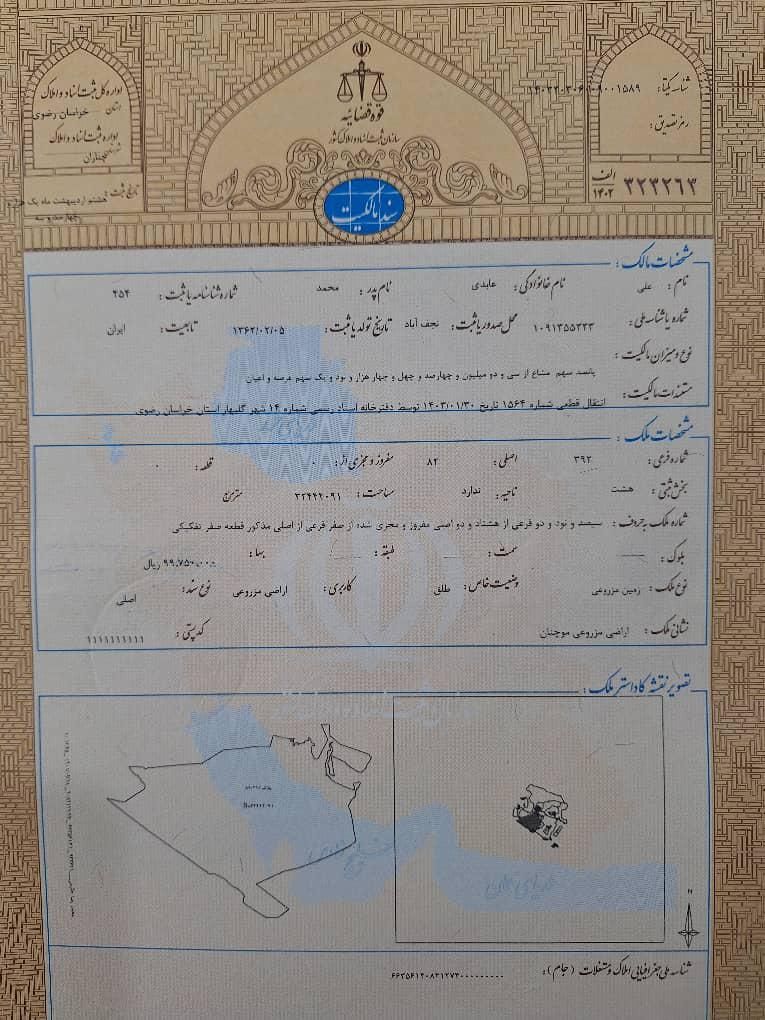 قوه قضائیه
سازمان ثبت اسناد و املاک کشور
سند مالکیت
اداره کل ثبت اسناد و املاک
استان خراسان رضوی
اداره ثبت اسناد و املاک
چناران
تاریخ ثبت: هشتم اردیبهشت ماه یک هزار و
چهارصد و سه
شناسه یکتا:
رمز تصدیق:
الف
۱۴۰۲
۳۲۳۲۶۳
مشخصات مالک:
نام: علی نام خانوادگی: عابدی نام پدر: محمد شماره شناسنامه یا ثبت: ۴۵۴
شماره یا شناسه ملی: ۱۰۹۱۳۵۵۳۳۳ محل صدور یا ثبت: نجف آباد تاریخ تولد یا ثبت: ۱۳۶۲/۰۲/۰۵ تابعیت: ایران
نوع و میزان مالکیت:
پانصد سهم مشاع از سی و دو میلیون و چهارصد و چهل و چهار هزار و نود و یک سهم عرصه و اعیان
مستندات مالکیت: انتقال قطعی شماره ۱۵۶۴ تاریخ ۱۴۰۳/۰۱/۳۰ توسط دفترخانه اسناد رسمی شماره ۱۴ شهر گلبهار استان خراسان رضوی
مشخصات ملک:
شماره فرعی: ۳۹۲ اصلی: ۸۲ مفروز و مجزی از: ۰ قطعه: ۰
بخش ثبتی: هشت ناحیه: ندارد مساحت: ۳۲۴۴۴۰۹۱ مترمربع
شماره ملک به حروف: سیصد و نود و دو فرعی از هشتاد و دو اصلی مفروز و مجزی شده از صفر فرعی از اصلی مذکور قطعه صفر تفکیکی
بلوک: سمت: طبقه: بها: ۹۹،۷۵۰،۰۰۰ ریال
نوع ملک: زمین مزروعی وضعیت خاص: طلق کاربری: اراضی مزروعی نوع سند: اصلی
نشانی ملک: اراضی مزروعی موچنان کدپستی: ۱۱۱۱۱۱۱۱۱۱
تصویر نقشه کاداستر ملک:
N
دریای خزر
خلیج فارس
دریای عمان
شناسه ملی جغرافیایی املاک و مستغلات (جام):